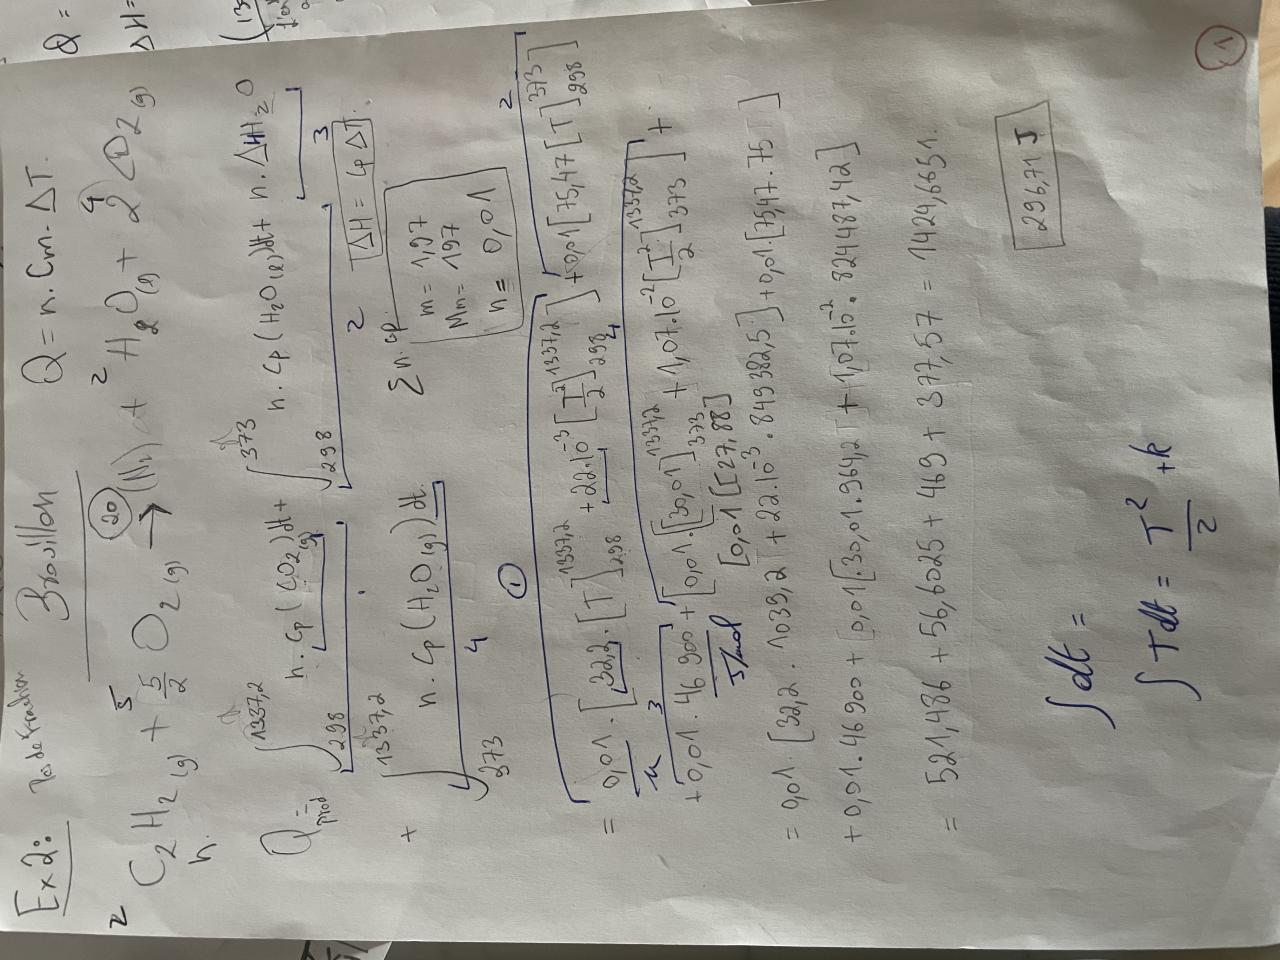 Ex 2: Pas de fraction Brouillon Q = n. Cm. ΔT.
2 C2H2(g) + 5/2 5 O2(g) 20 → (N2) + 2 H2O(g) + 2 4 CO2(g)
n.
Qprod = ∫298 1337,2 n. Cp (CO2(g)) dt + ∫298 373 n. Cp (H2O(l)) dt + n. ΔH H2O
2 3
+ ∫373 1337,2 n. Cp (H2O(g)) dt. Σ n. cp. ΔH = Cp ΔT.
4
m = 1,97
Mm = 197
n = 0,01
1 2
= 0,01. [32,2. [T]298 1337,2 + 22.10-3 [T2/2]298 1337,2] + 0,01 [75,47 [T]298 373]
n 3 4
+ 0,01. 46 900 + [0,01. [30,01]373 1337,2 + 1,07.10-2 [T2/2]373 1337,2] +
J/mol [0,01 [27,88]
= 0,01. [32,2. 1039,2 + 22.10-3. 849382,5] + 0,01. [75,47. 75]
+ 0,01. 46900 + [0,01 [30,01. 964,2 + 1,07.10-2. 824487,42]
= 521,486 + 56,6025 + 469 + 377,57 = 1424,6851.
296,71 J
∫ dt =
∫ T dt = T2/2 + k
1
Q =
ΔH =